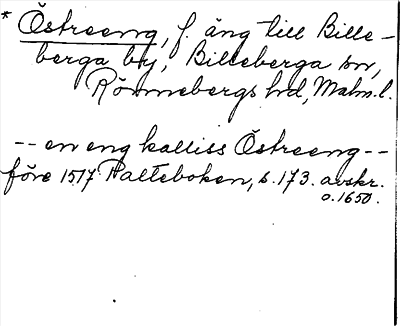 * Östreeng, f. äng till Bille-
berga by, Billeberga sn,
Rönnebergs hd, Malm.l.
-- en eng kalliss Östreeng --
före 1517 Palteboken, s. 173. avskr.
o. 1650.